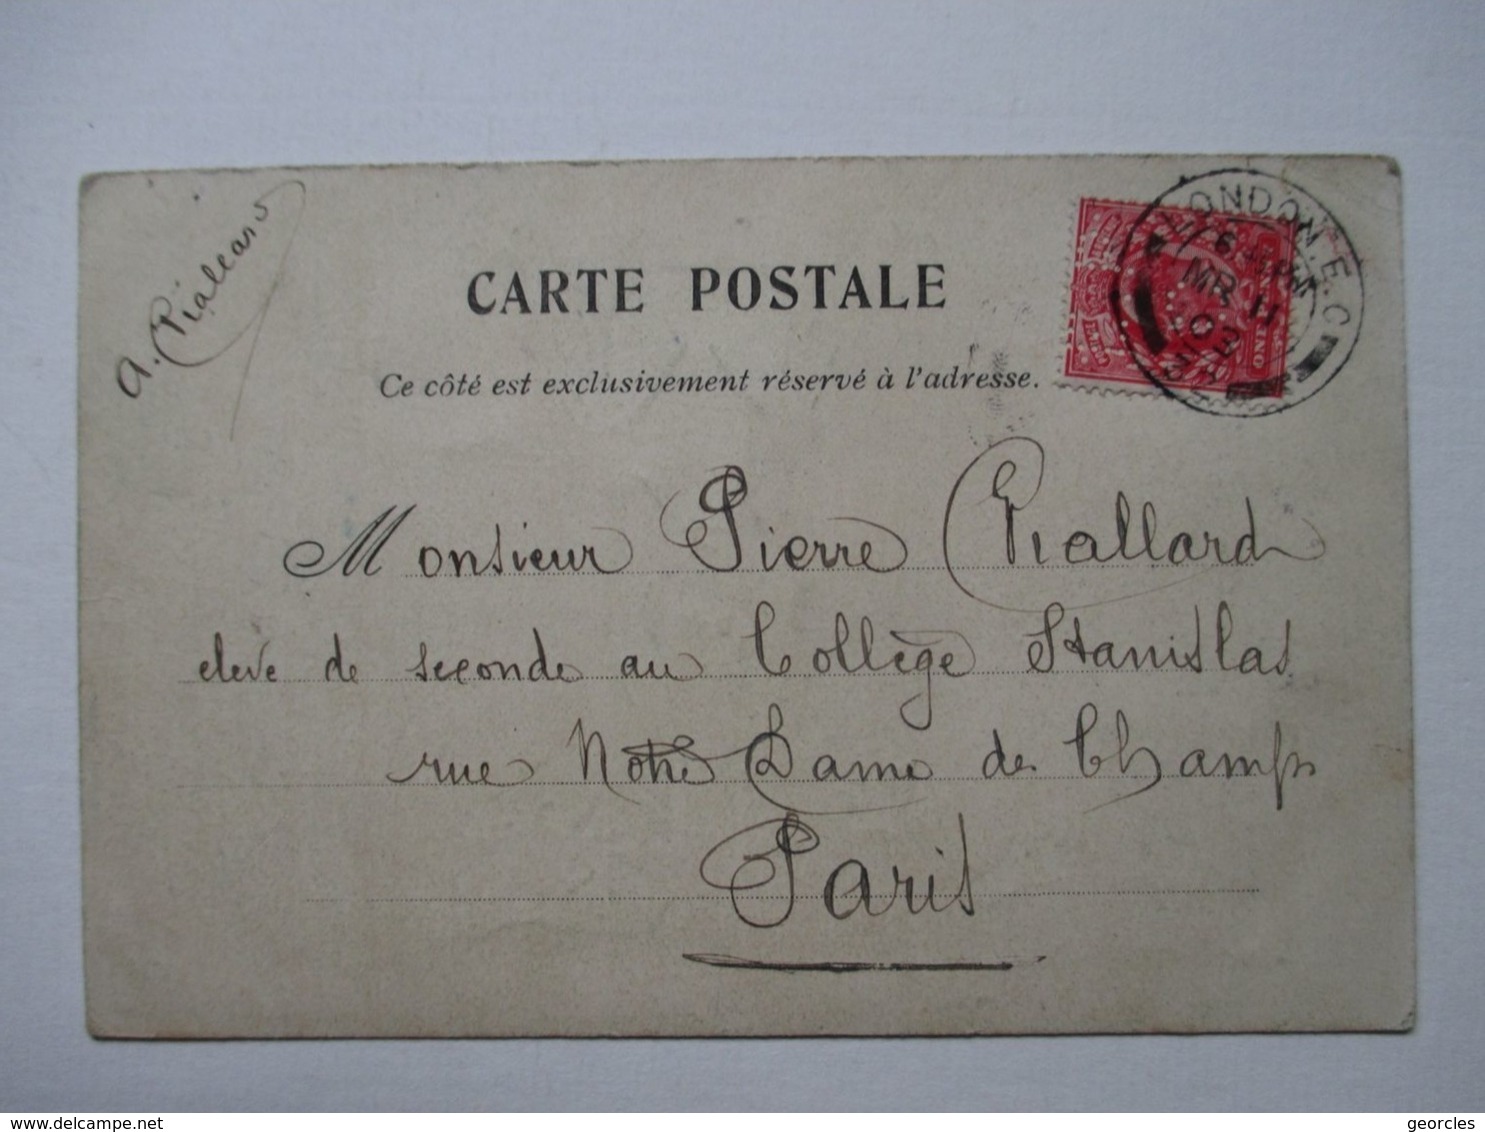 A. Piallard
CARTE POSTALE
Ce côté est exclusivement réservé à l'adresse.
LONDON. E.C
MR 11
Monsieur Pierre Piallard
eleve de seconde au Collège Stanislas
rue Notre Dame de Champs
Paris
delcampe.net
georcles